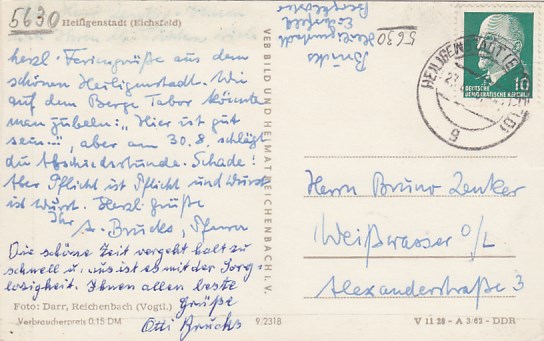 5630
Heiligenstadt (Eichsfeld)
herzl. Feriengrüße aus dem
schönen Heiligenstadt. Wie
auf dem Berge Tabor könnte
man jubeln: „Hier ist gut
sein...", aber am 30.8. schlägt
die Abschiedsstunde. Schade!
Aber Pflicht ist Pflicht und Wurst
ist Wurst. Herzl. Grüße
Ihr A. Brucks, Pfarrer
Die schöne Zeit vergeht halt zu
schnell u. aus ist es mit der Sorg-
losigkeit. Ihnen allen beste
Grüße
Otti Brucks
Foto: Darr, Reichenbach (Vogtl.)
Verbraucherpreis 0.15 DM
9/2318
VEB BILD UND HEIMAT REICHENBACH i. V.
Brucks
Heiligenstadt
5630
HEILIGENSTADT
9
10
DEUTSCHE
DEMOKRATISCHE REPUBLIK
Herrn Bruno Zenker
Weißwasser O/L
Alexanderstraße 3
V 11 28 - A 3/62 - DDR